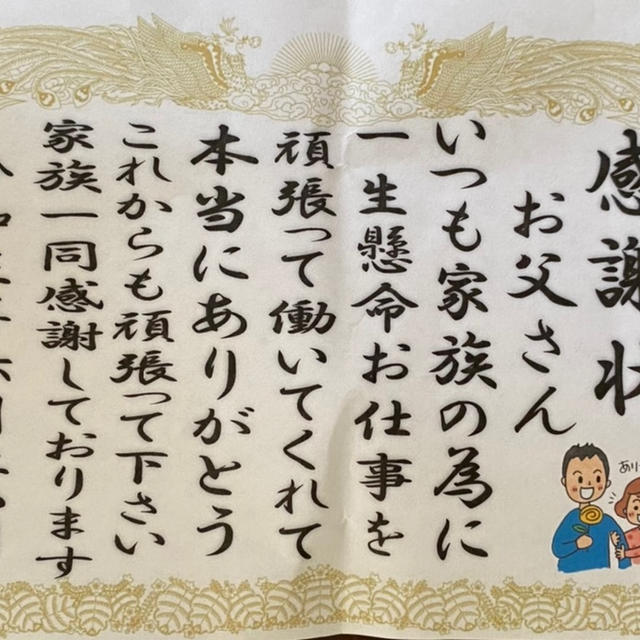 感謝状
お父さん
いつも家族の為に
一生懸命お仕事を
頑張って働いてくれて
本当にありがとう
これからも頑張って下さい
家族一同感謝しております
あり